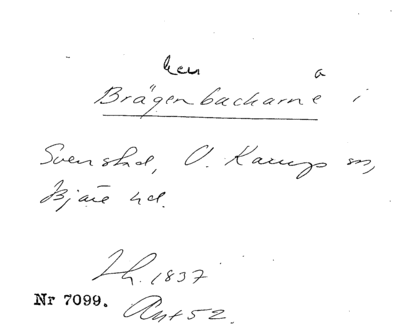 ken a
Brägenbackarne i
Svenstad, V. Karup sn,
Bjäre hd.
Lh. 1837
Nr 7099. Ant 52.